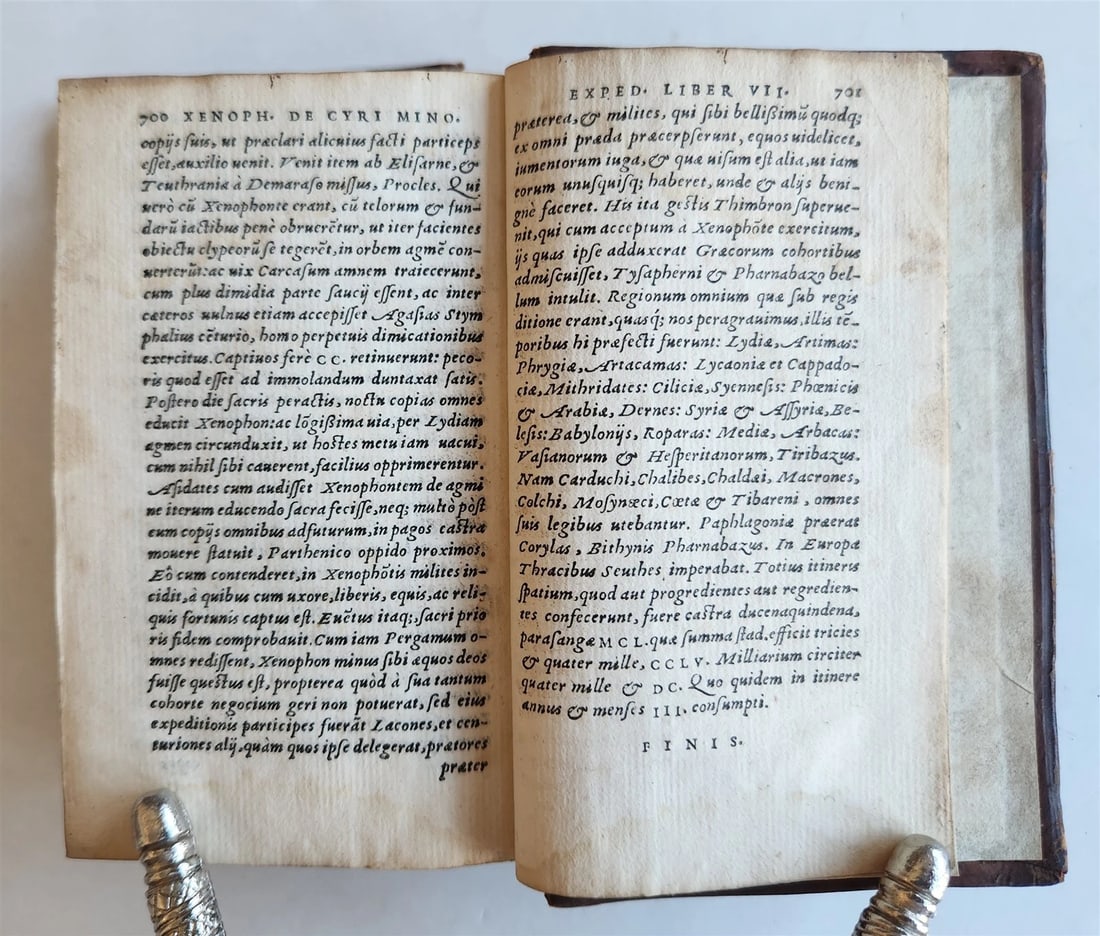 700 XENOPH. DE CYRI MINO.
copijs suis, ut præclari alicuius facti particeps
esset, auxilio uenit. Venit item ab Elisarne, &
Teuthrania à Demarato missus, Procles. Qui
uerò cũ Xenophonte erant, cũ telorum & fun-
darũ iactibus penè obruerẽtur, ut iter facientes
obiectu clypeorũ se tegerẽt, in orbem agmẽ con-
uerterũt: ac uix Carcasum amnem traiecerunt,
cum plus dimidia parte saucij essent, ac inter
cæteros uulnus etiam accepisset Agasias Stym
phalius cẽturio, homo perpetuis dimicationibus
exercitus. Captiuos ferè CC. retinuerunt: peco-
ris quod esset ad immolandum duntaxat satis.
Postero die sacris peractis, noctu copias omnes
educit Xenophon: ac lõgißima uia, per Lydiam
agmen circunduxit, ut hostes metu iam uacui,
cum nihil sibi cauerent, facilius opprimerentur.
Asidates cum audisset Xenophontem de agmi
ne iterum educendo sacra fecisse, neq; multò pòst
cum copijs omnibus adfuturum, in pagos castra
mouere statuit, Parthenico oppido proximos.
Eò cum contenderet, in Xenophõtis milites in-
cidit, à quibus cum uxore, liberis, equis, ac reli-
quis fortunis captus est. Euẽtus itaq; sacri prio
ris fidem comprobauit. Cum iam Pergamum o-
mnes redissent, Xenophon minus sibi æquos deos
fuisse questus est, propterea quòd à sua tantum
cohorte negocium geri non potuerat, sed eius
expeditionis participes fuerãt Lacones, et cen-
turiones alij, quàm quos ipse delegerat, prætores
præter
EXPED. LIBER VII. 701
præterea, & milites, qui sibi bellißimũ quodq;
ex omni præda præcerpserunt, equos uidelicet,
iumentorum iuga, & quæ uisum est alia, ut iam
eorum unusquisq; haberet, unde & alijs beni-
gnè faceret. His ita gestis Thimbron superue-
nit, qui cum acceptum à Xenophõte exercitum,
ijs quas ipse adduxerat Græcorum cohortibus
admiscuisset, Tysapherni & Pharnabazo bel-
lum intulit. Regionum omnium quæ sub regis
ditione erant, quasq́; nos peragrauimus, illis tẽ-
poribus hi præfecti fuerunt: Lydiæ, Artimas:
Phrygiæ, Artacamas: Lycaoniæ et Cappado-
ciæ, Mithridates: Ciliciæ, Syennesis: Phœnicis
& Arabiæ, Dernes: Syriæ & Assyriæ, Be-
lesis: Babylonijs, Roparas: Mediæ, Arbacas:
Vasianorum & Hesperitanorum, Tiribazus.
Nam Carduchi, Chalibes, Chaldæi, Macrones,
Colchi, Mosynæci, Cœtæ & Tibareni, omnes
suis legibus utebantur. Paphlagoniæ præerat
Corylas, Bithynis Pharnabazus. In Europa
Thracibus Seuthes imperabat. Totius itineris
spatium, quod aut progredientes aut regredien-
tes confecerunt, fuere castra ducenaquindena,
parasangæ MCL. quæ summa stad. efficit tricies
& quater mille, CCLV. Milliarium circiter
quater mille & DC. Quo quidem in itinere
annus & menses III. consumpti.
FINIS.